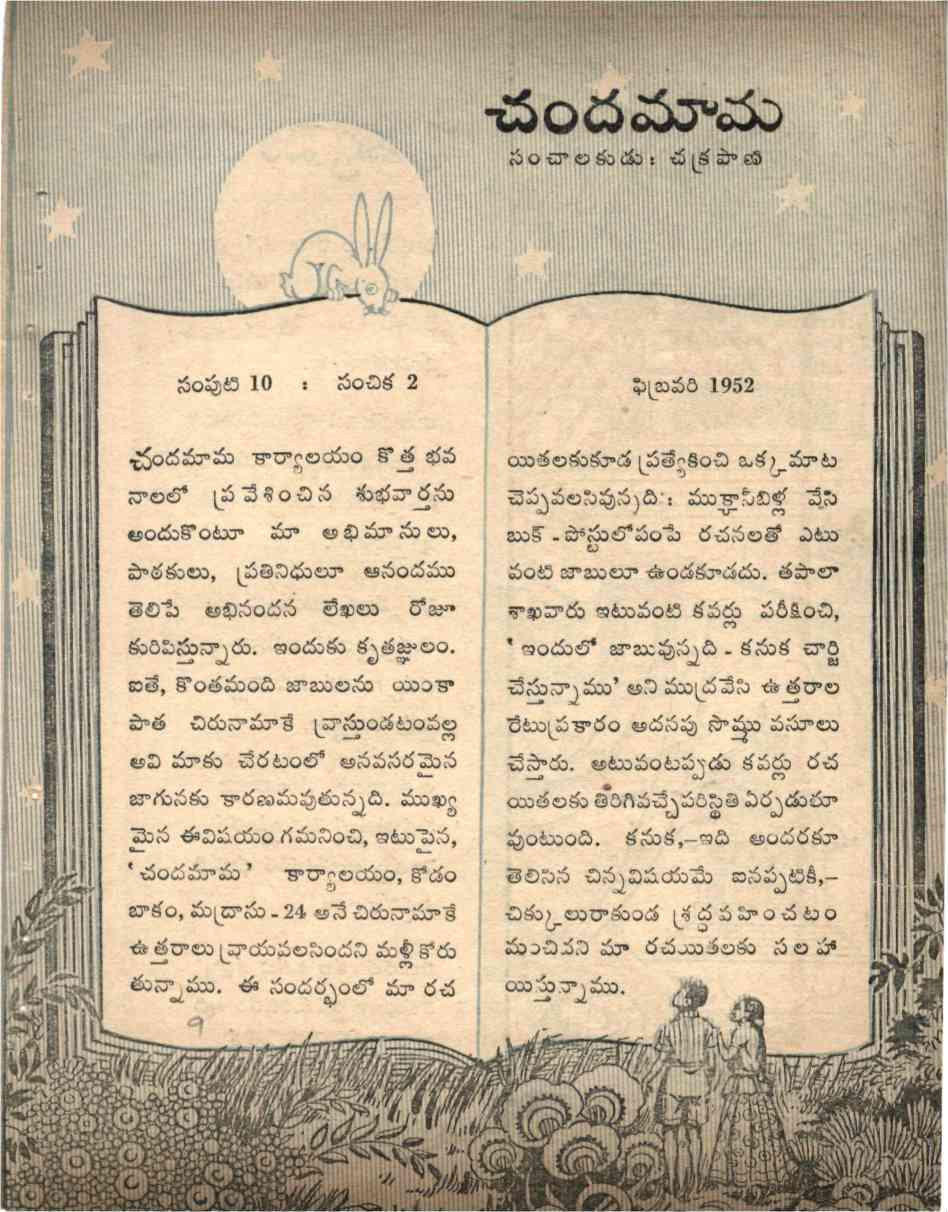 చందమామ
సంచాలకుడు : చక్రపాణి
సంపుటి 10 : సంచిక 2
చందమామ కార్యాలయం కొత్త భవ
నాలలో ప్రవేశించిన శుభవార్తను
అందుకొంటూ మా అభిమానులు,
పాఠకులు, ప్రతినిధులూ ఆనందము
తెలిపే అభినందన లేఖలు రోజూ
కురిపిస్తున్నారు. ఇందుకు కృతజ్ఞులం.
ఐతే, కొంతమంది జాబులను యింకా
పాత చిరునామాకే వ్రాస్తుండటంవల్ల
అవి మాకు చేరటంలో అనవసరమైన
జాగునకు కారణమవుతున్నది. ముఖ్య
మైన ఈవిషయం గమనించి, ఇటుపైన,
‘చందమామ’ కార్యాలయం, కోడం
బాకం, మద్రాసు - 24 అనే చిరునామాకే
ఉత్తరాలు వ్రాయవలసిందని మళ్లీ కోరు
తున్నాము. ఈ సందర్భంలో మా రచ
9
ఫిబ్రవరి 1952
యితలకుకూడ ప్రత్యేకించి ఒక్కమాట
చెప్పవలసివున్నది : ముక్కాసీబిళ్ల వేసి
బుక్ - పోస్టులోపంపే రచనలతో ఎటు
వంటి జాబులూ ఉండకూడదు. తపాలా
శాఖవారు ఇటువంటి కవర్లు పరీక్షించి,
‘ఇందులో జాబువున్నది - కనుక చార్జి
చేస్తున్నాము’ అని ముద్రవేసి ఉత్తరాల
రేటుప్రకారం అదనపు సొమ్ము వసూలు
చేస్తారు. అటువంటప్పుడు కవర్లు రచ
యితలకు తిరిగివచ్చేపరిస్థితి ఏర్పడుతూ
వుంటుంది. కనుక,—ఇది అందరకూ
తెలిసిన చిన్నవిషయమే ఐనప్పటికీ,—
చిక్కులురాకుండ శ్రద్ధవహించటం
మంచిదని మా రచయితలకు సలహా
యిస్తున్నాము.